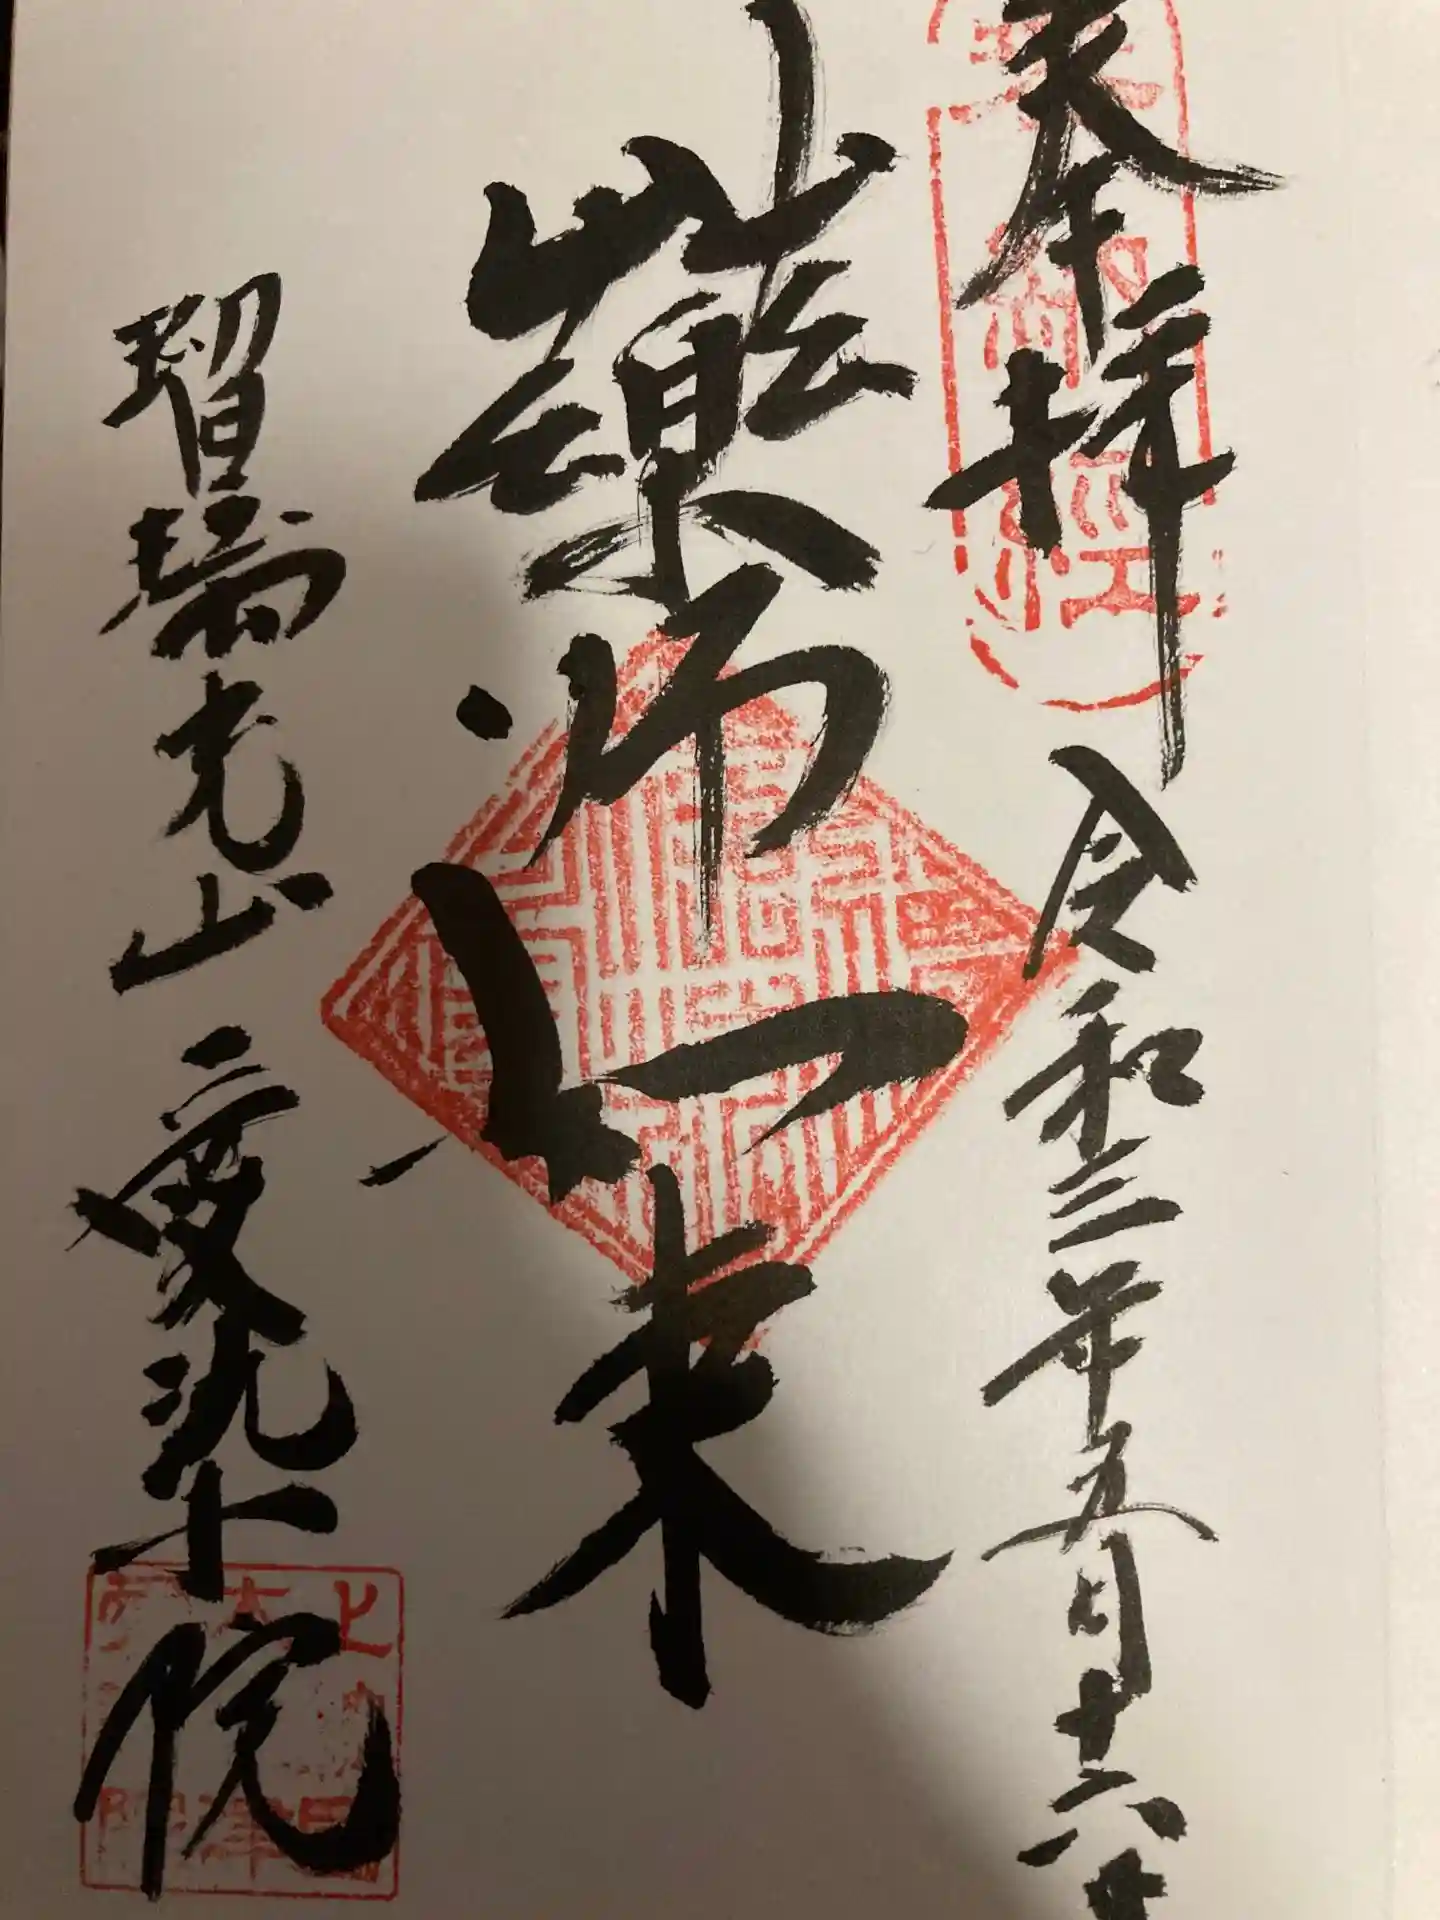 奉拝 令和三年五月十六日
薬師如来
瑠璃光山 愛染院